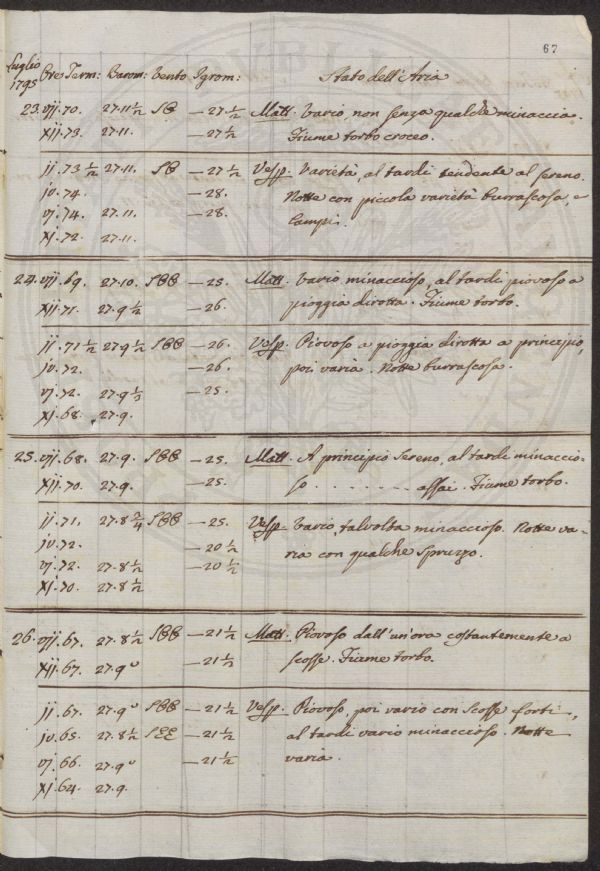 67
Luglio
1795 Ore Term: Barom: Vento Igrom: Stato dell'Aria
23. vij. 70. 27.11 1/2 SE — 27. 1/2 Matt. Vario, non senza qualche minaccia.
xij. 73. 27.11. — 27 1/2 Fiume torbo croceo.
ij. 73 1/2 27.11. SE — 27 1/2 Vesp. Varietà, al tardi tendente al sereno.
iv. 74. — 28. Notte con piccola varietà burrascosa, e
vj. 74. 27.11. — 28. Lampi.
xj. 72. 27.11.
24. vij. 69. 27.10. SEE — 25. Matt. Vario minaccioso, al tardi piovoso a
xij. 71. 27.9 1/2 — 26. pioggia dirotta. Fiume torbo.
ij. 71 1/2 27.9 1/2 SEE — 26. Vesp. Piovoso a pioggia dirotta a principio,
iv. 72. — 26. poi varia. Notte burrascosa.
vj. 72. 27.9 1/2 — 25.
xj. 68. 27.9.
25. vij. 68. 27.9. SEE — 25. Matt. A principio sereno, al tardi minaccio-
xij. 70. 27.9. — 25. so . . . . . . . . assai. Fiume torbo.
ij. 71. 27.8 3/4 SEE — 25. Vesp. Vario, talvolta minaccioso. Notte va-
iv. 72. — 20 1/2 ria con qualche spruzzo.
vj. 72 27.8 1/2 — 20 1/2
xj. 70. 27.8 1/2
26. vij. 67. 27.8 1/2 SEE — 21 1/2 Matt. Piovoso dall'un'ora costantemente a
xij. 67. 27.9° — 21 1/2 scosse. Fiume torbo.
ij. 67. 27.9° SEE — 21 1/2 Vesp. Piovoso, poi vario con scosse forti,
iv. 65. 27.8 1/2 SEE — 21 1/2 al tardi vario minaccioso. Notte
vj. 66. 27.9° — 21 1/2 varia.
xj. 64. 27.9.